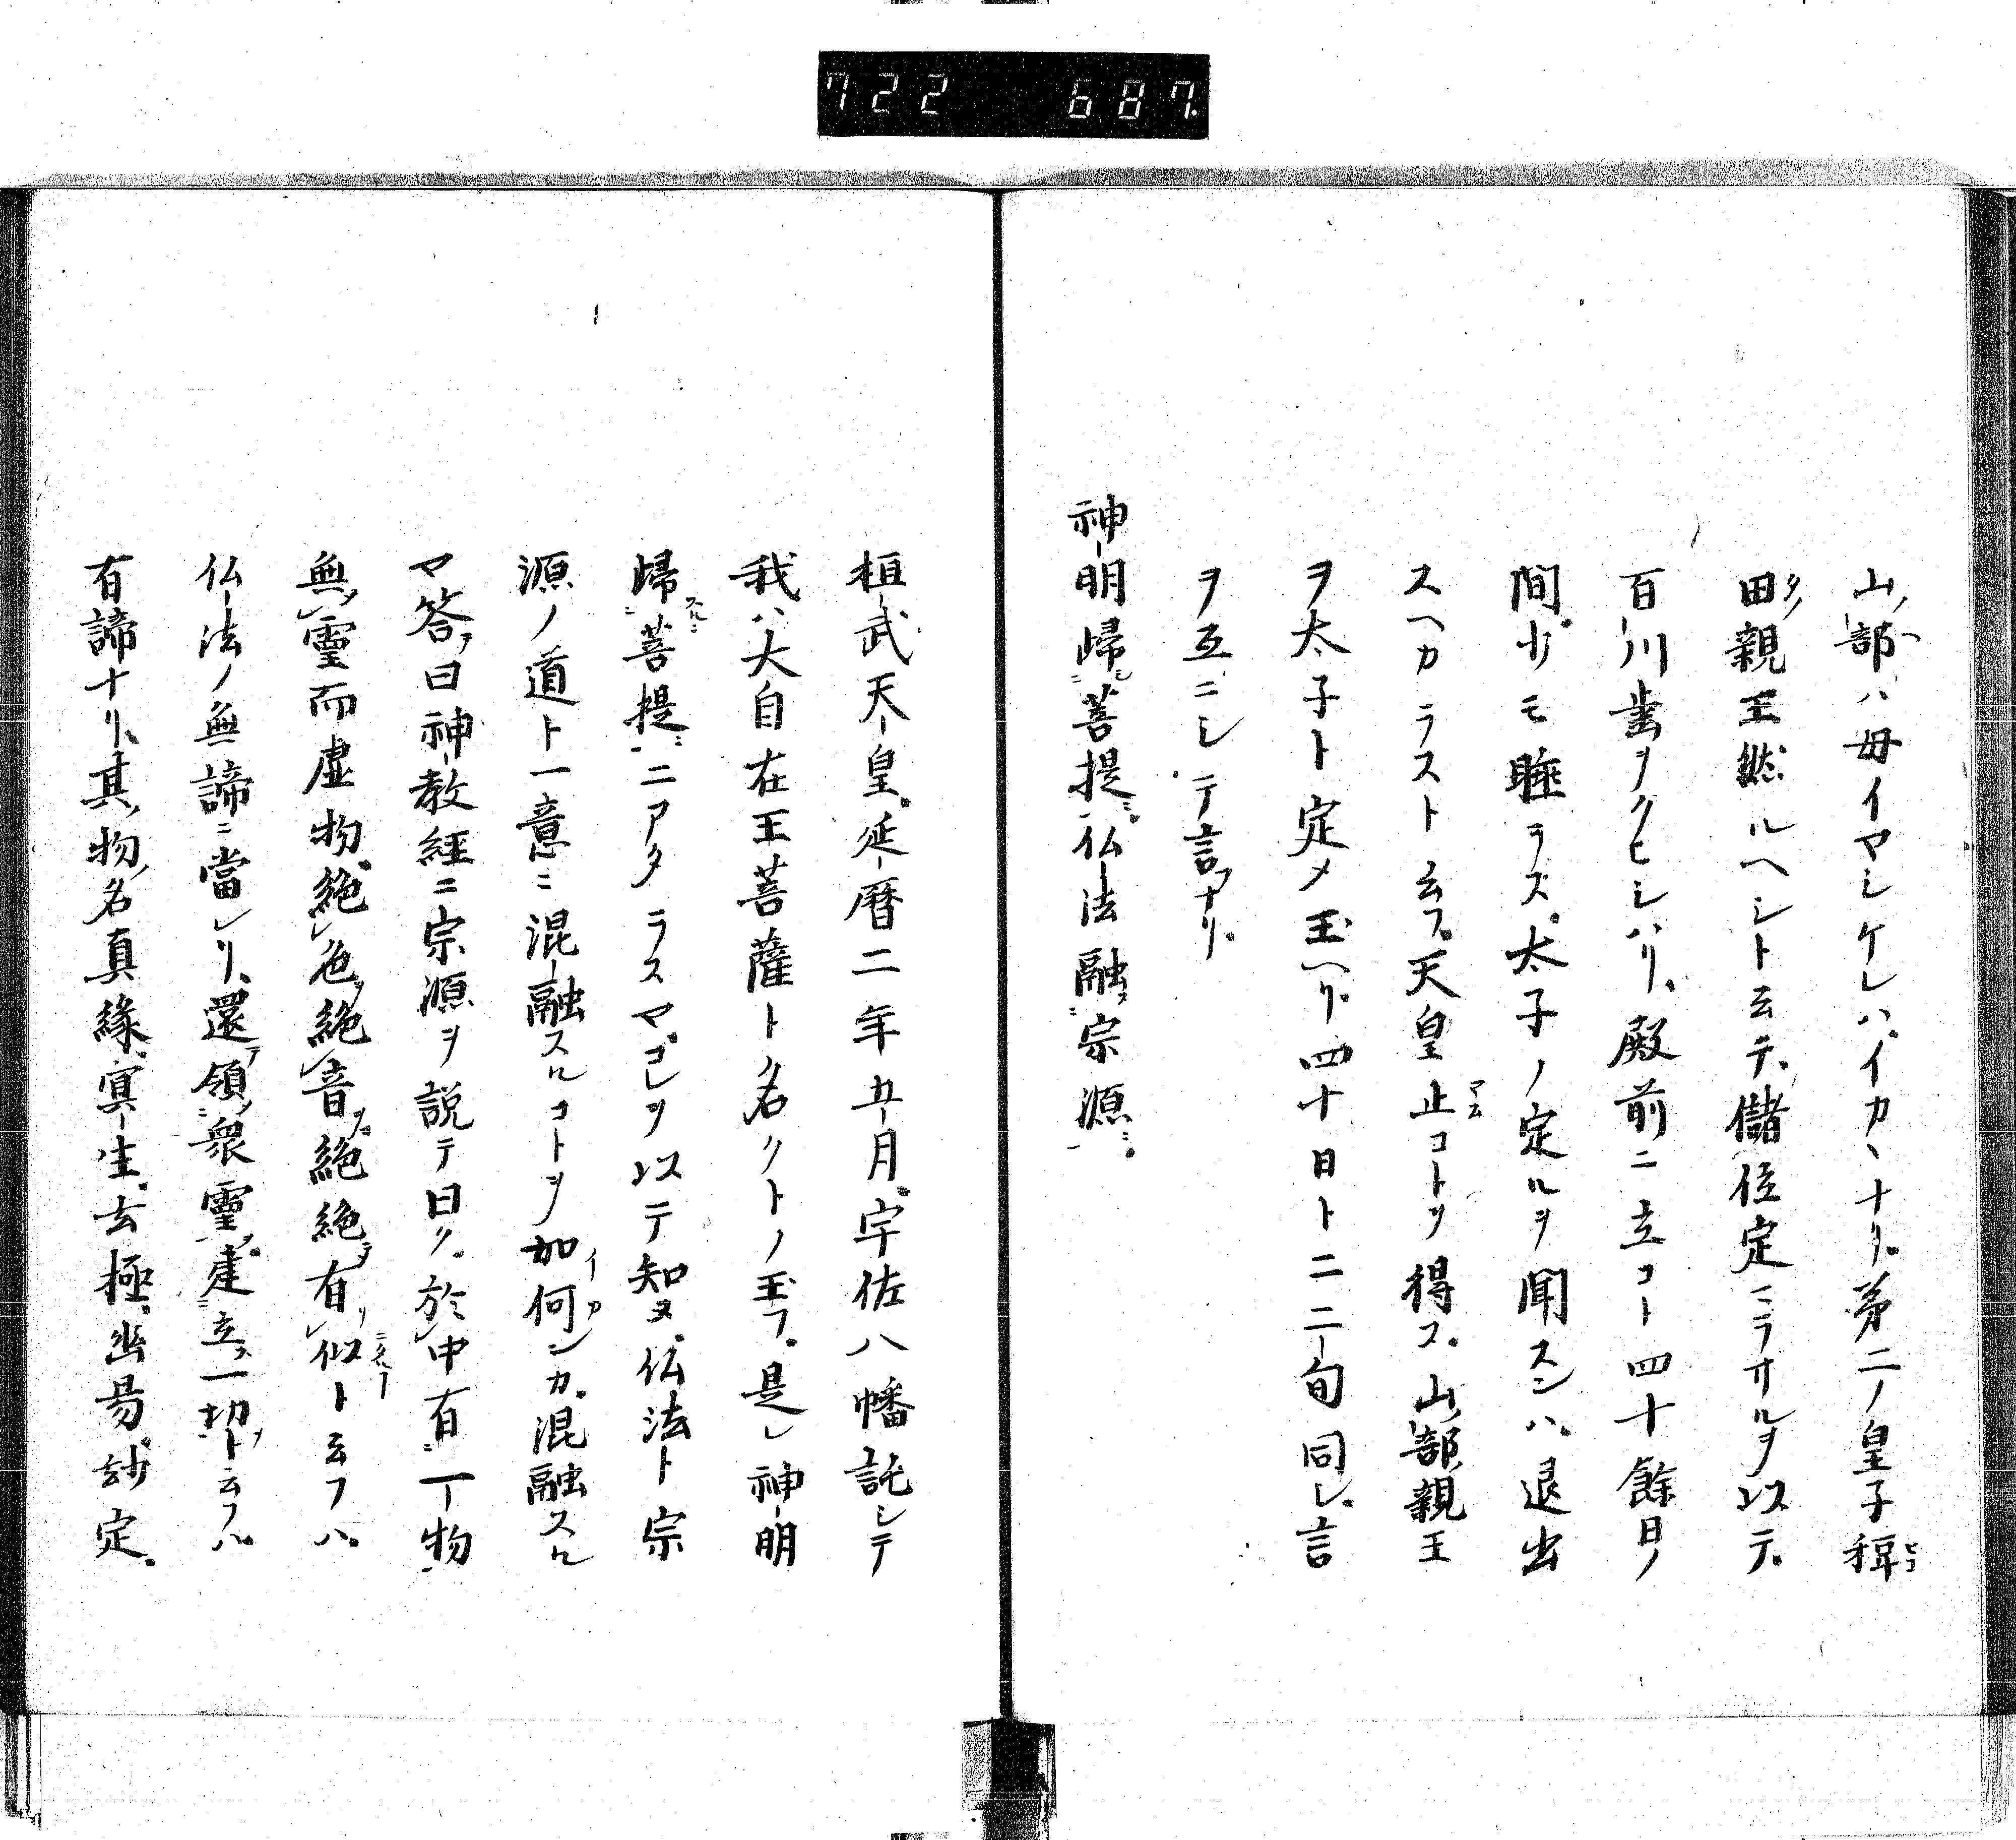 722 687
山部ハ母イマシケレハイカヽナリ第二ノ皇子稗
田親王然ルヘシト云テ儲位定ミラサルヲ以テ
百川歯ヲクヒシハリ殿前ニ立コト四十餘日ノ
間少モ睡ラス太子ノ定ルヲ聞スンハ退出
スヘカラスト云フ天皇止コトヲ得ス山部親王
ヲ太子ト定メ玉ヘリ四十日ト二二旬同シ言
ヲ互ニシテ言ナリ
神明歸菩提仏法融宗源
桓武天皇延暦二年五月宇佐八幡託シテ
我ハ大自在王菩薩ト名クトノ玉フ是レ神明
歸菩提ニアタラスマコレヲ以テ知ヌ仏法ト宗
源ノ道ト一意ニ混融スルコトヲ如何ンカ混融スル
マ答曰神教經ニ宗源ヲ説テ曰ク於中有一物
無靈而虚物絶色絶音絶絶有似ト云フハ
仏法ノ無諦ニ當レリ還領衆靈建立一切ト云フハ
有諦ナリ其物名真縁冥生去極出易紗定